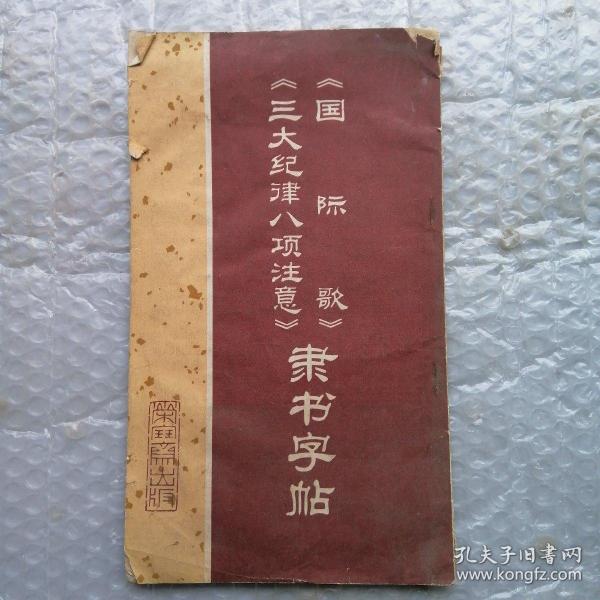 《国际歌》
《三大纪律八项注意》
隶书字帖
荣宝斋出版
孔夫子旧书网
www.kongfz.com